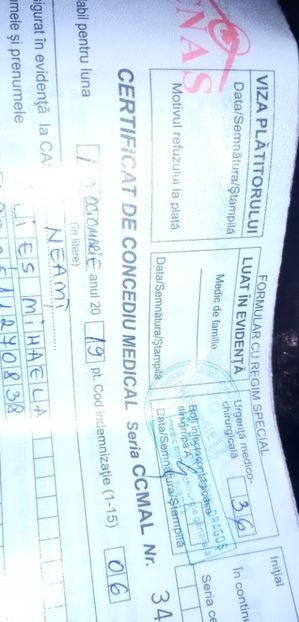 NAS
Motivul refuzului la plată
VIZA PLĂTITORULUI
Data/Semnătura/Ştampilă
FORMULAR CU REGIM SPECIAL
LUAT ÎN EVIDENŢĂ
Medic de familie
Data/Semnătura/Ştampilă
Urgenţă medico-
chirurgicală
36
Boli infectocontagioase
din grupa A
DRAGOŞ
Data/Semnătura/Ştampilă
Iniţial
În continu
Seria ce
CERTIFICAT DE CONCEDIU MEDICAL Seria CCMAL Nr. 34
abil pentru luna OCTOMBRIE anul 20 19 pt. Cod indemnizaţie (1-15) 06
(în litere)
sigurat în evidenţă la CA: NEAMŢ
mele şi prenumele
MIHAELA